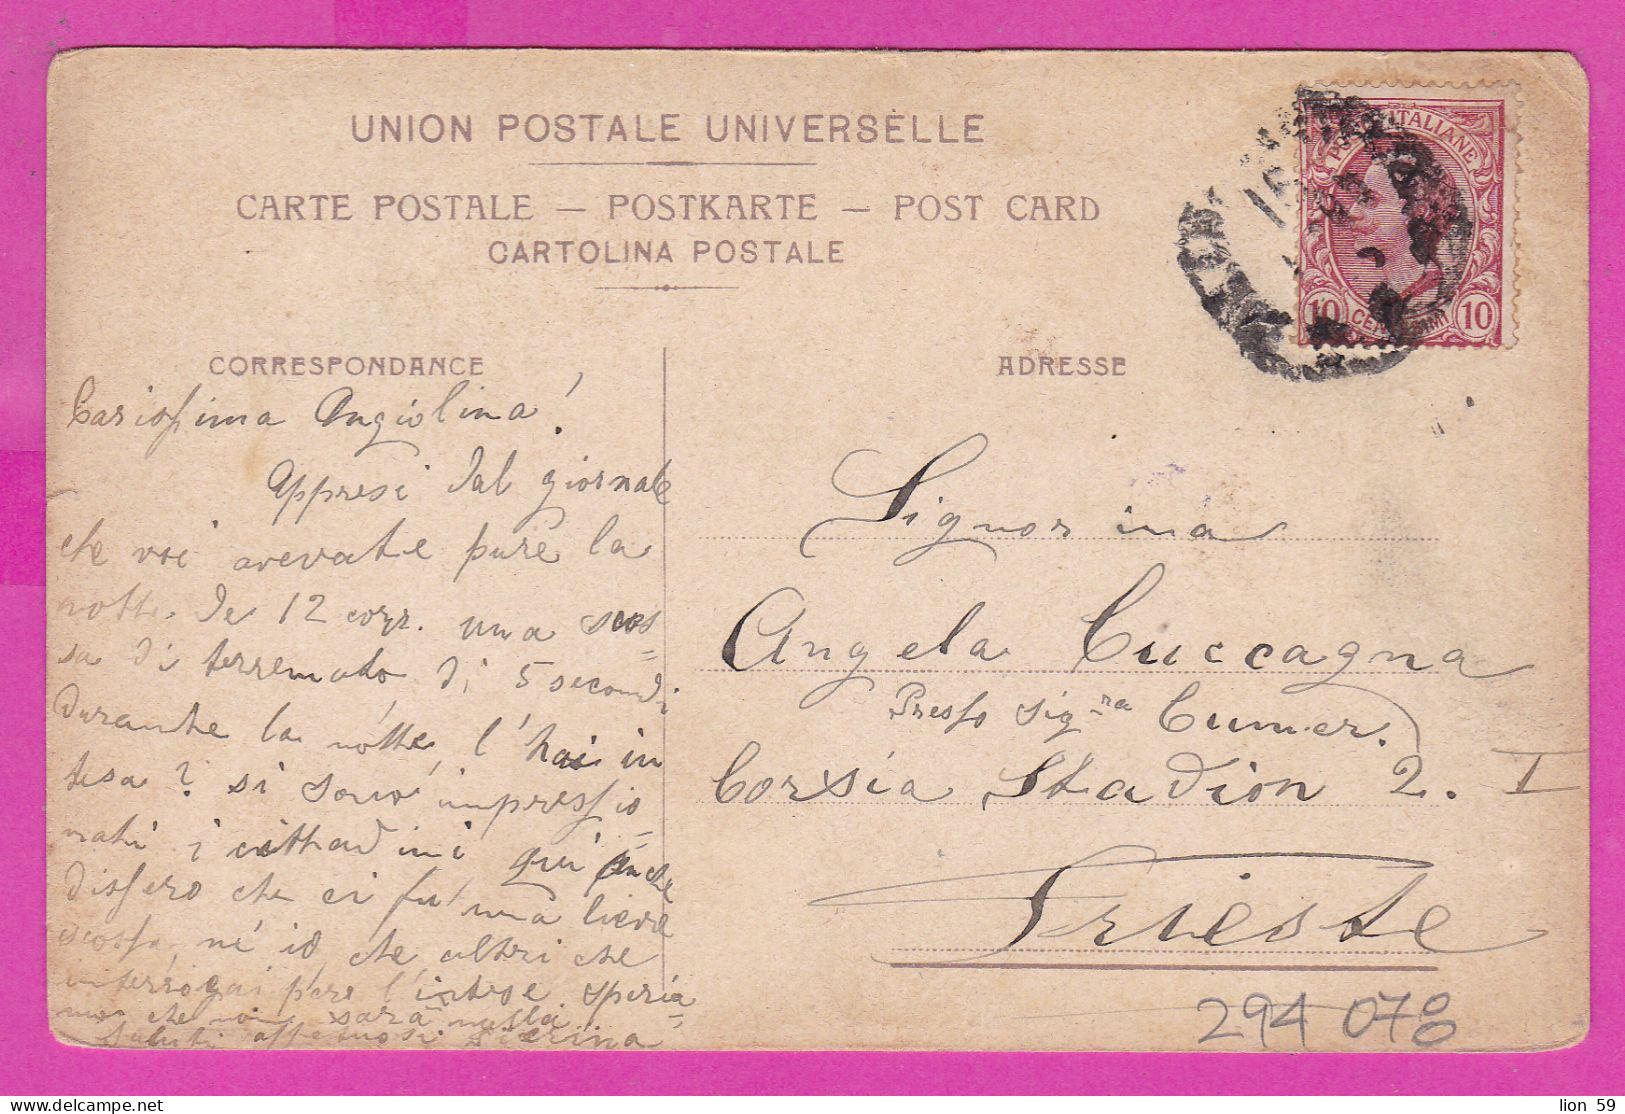 UNION POSTALE UNIVERSELLE
CARTE POSTALE — POSTKARTE — POST CARD
CARTOLINA POSTALE
POSTE ITALIANE
10 CENTESIMI 10
CORRESPONDANCE
Carissima Angiolina!
Appresi dal giornale
che voi avevate pure la
notte de 12 corr. una scos=
sa di terremoto di 5 secondi
durante la notte, l'hai in
tesa? si sono impressio=
nati i cittadini qui anche
dissero che ci fu una lieve
scossa, né io che altri che
interrogai pare l'intese speria=
mo che non sarà nulla
Saluti affettuosi
ADRESSE
Signorina
Angela Cuccagna
Presso sigra Cumer.
Corsia Stadion 2. I
Trieste
294 078
lion 59